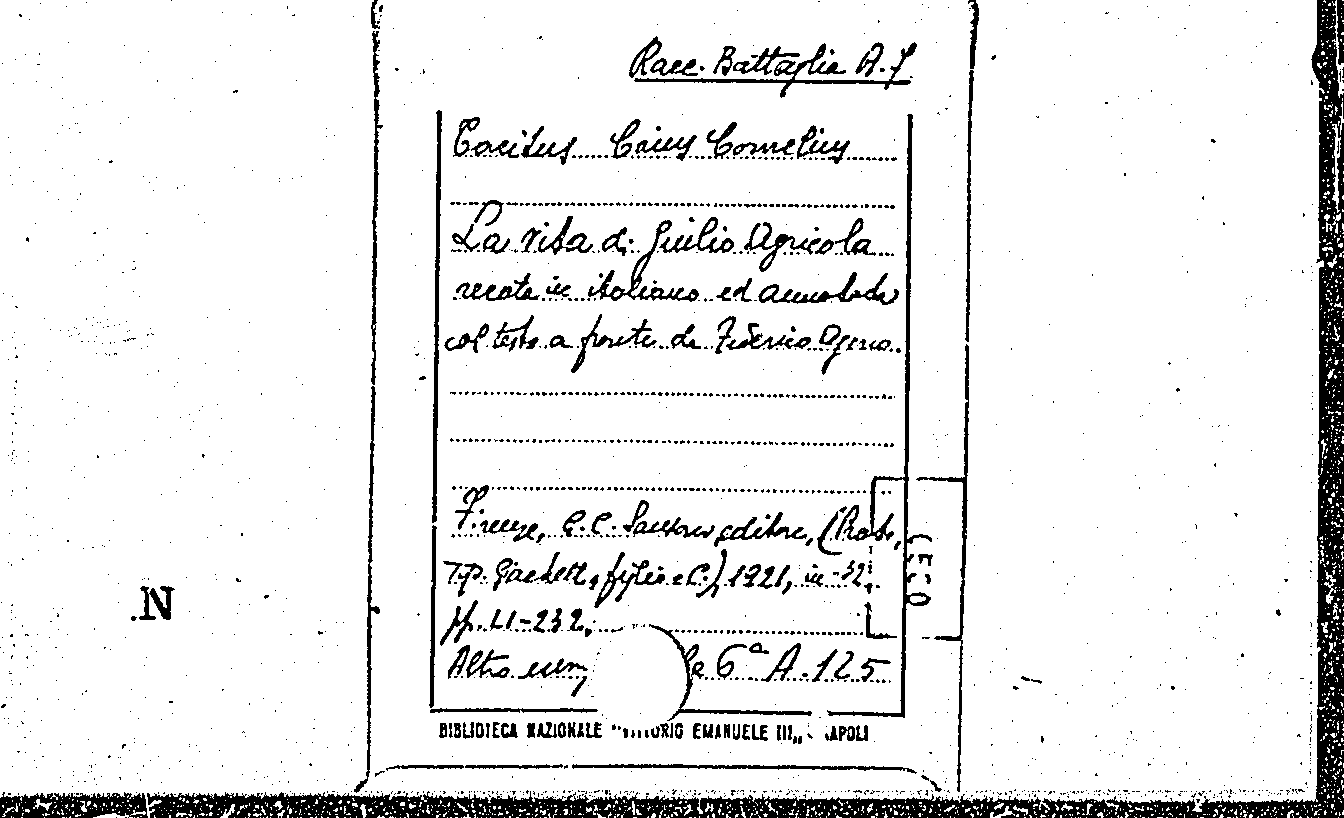 Racc. Battaglia A. 
Tacitus Caius Cornelius
La vita di Giulio Agricola
recata in italiano ed annotata
col testo a fronte da Federico Ageno.
Firenze, G. C. Sansoni editore, (Prato,
Tip. Giachetti, figlio e C.) 1921, in -32.
pp. LI-232.
Altro esem 6ª A. 125
N
BIBLIOTECA NAZIONALE EMANUELE III,,